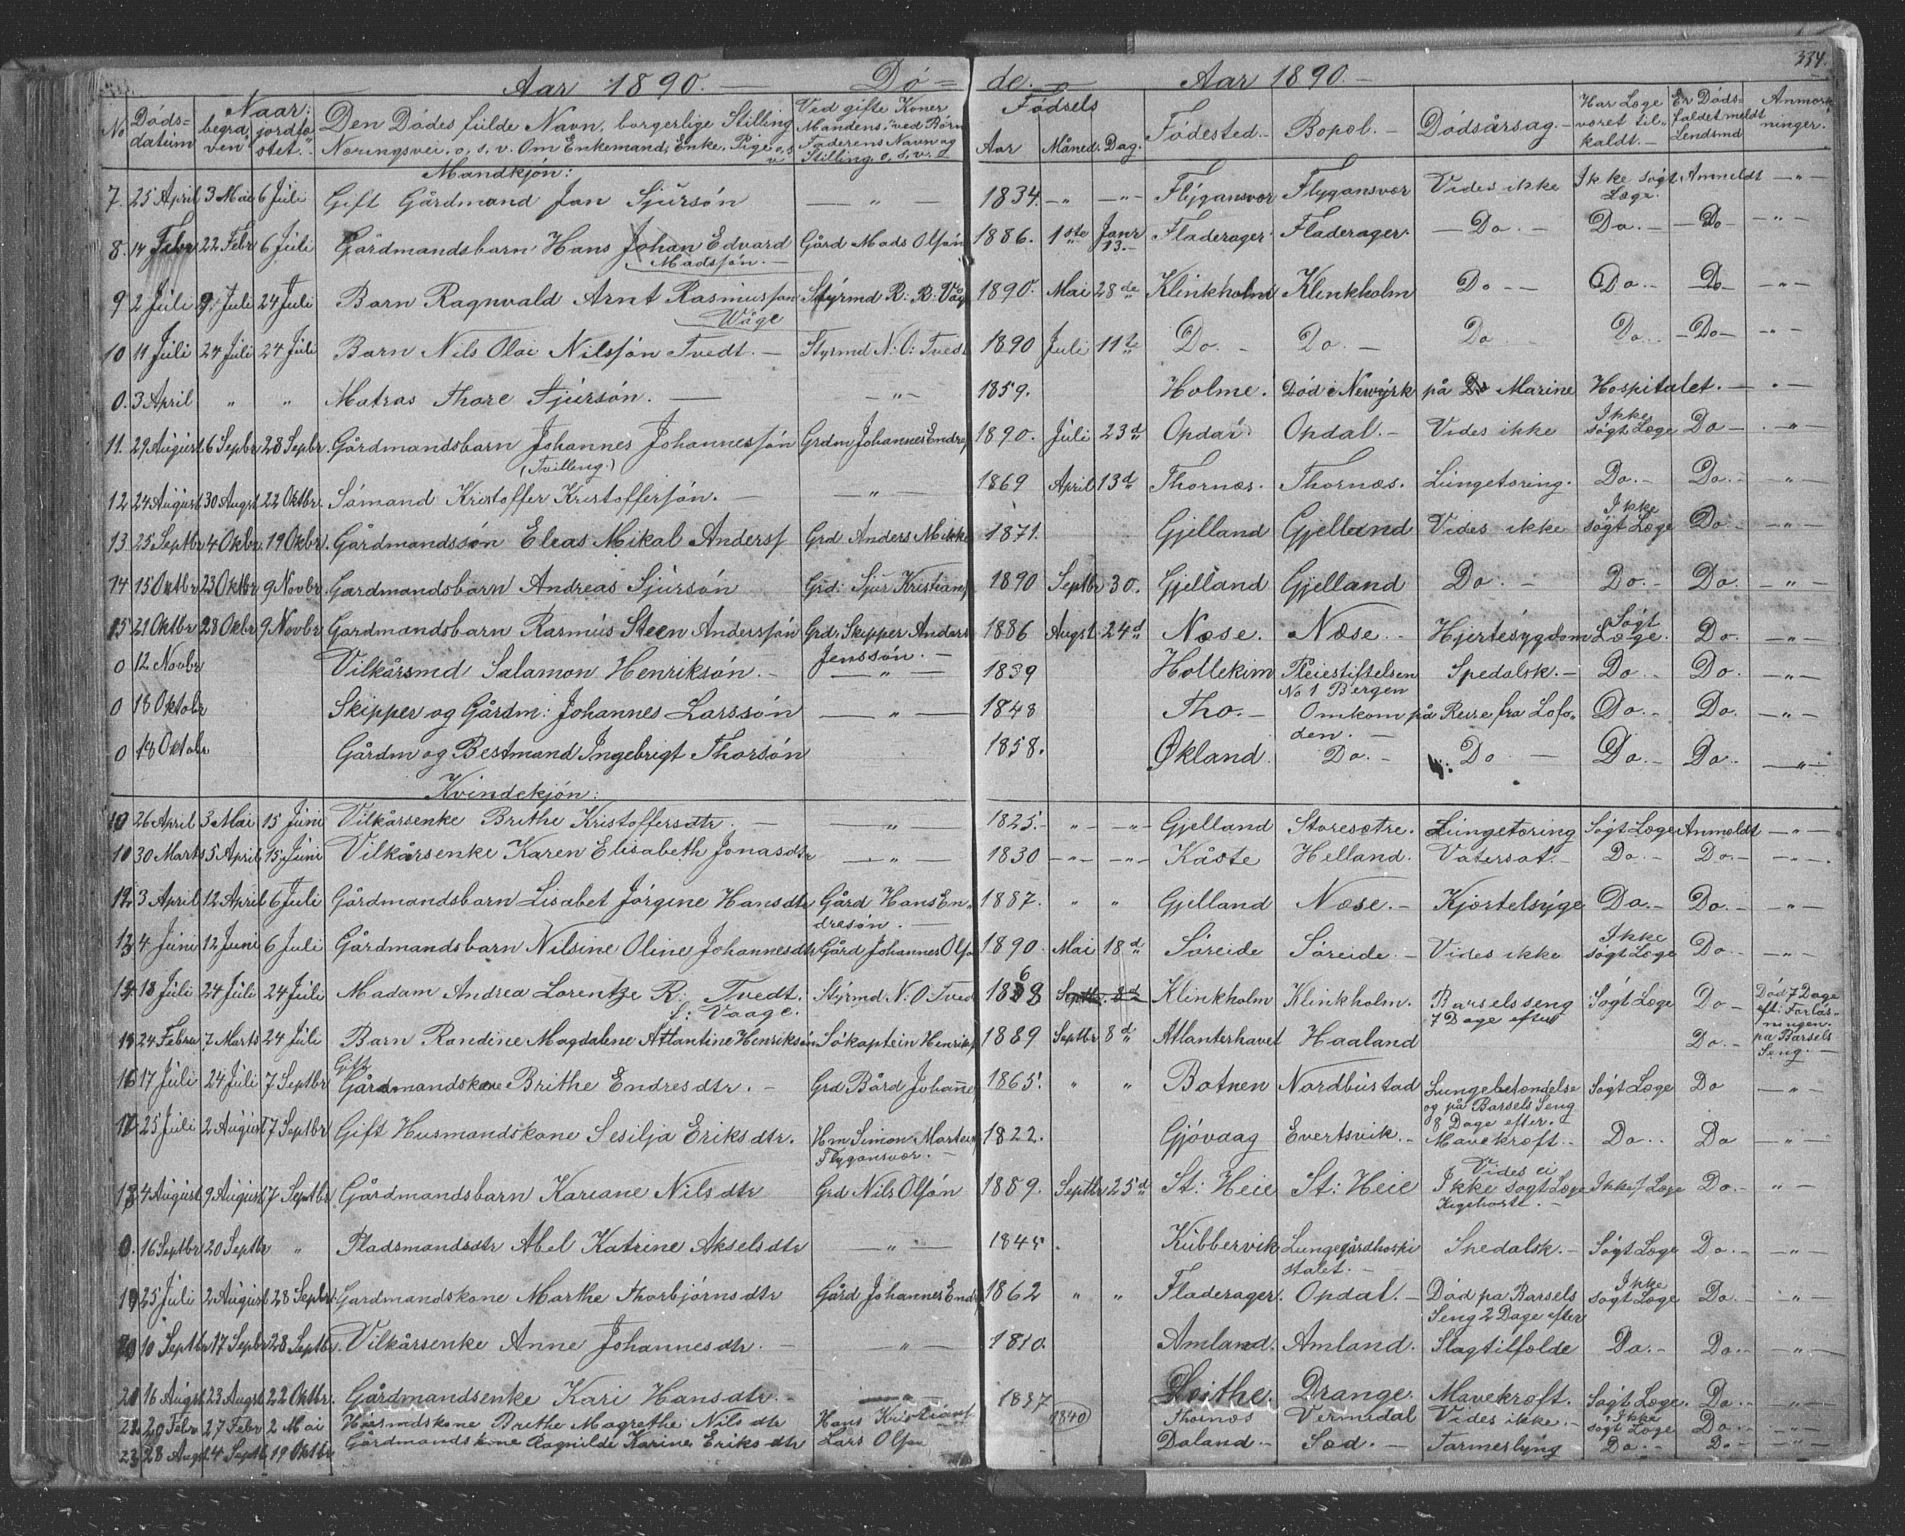 Aar 1890. — Dö = de. — Aar 1890. — 334.
No Döds-datum Naar: begra ven jordfæ stet. Den Dödes fulde Navn, borgerlige Stilling Næringsvei, o, s, v. Om Enkemand, Enke, Pige o, s v Ved gifte Koner Mandens, ved Börn Faderens Navn og Stilling, o, s, v. Födsels Aar Måned. Dag. Födested. Bopæl. Dödsårsag. Har Læge været til kaldt. Er Döds-faldet meldt Lendsmd Anmærk ninger.
Mandkjön:
7. 25 April 3 Mai 6 Juli Gift Gårdmand Jan Sjursön — „ — 1834. „ „ Flygansvær Flygansvær Vides ikke Ikke sögt Læge. Anmeldt „
8. 14 Febr 22 Febr 6 Juli Gårdmandsbarn Hans Johan Edvard Gård Mads Olsön 1886. 1ste Janr 13. Fladerager Fladerager. Do. Do. Do „
Madssön.
9 2 Juli 9 Juli 24 Juli Barn Ragnvald Arnt Rasmussøn Styrmd R: B: Våg 1890. Mai 28de Klinkholm Klinkholm Do Do. Do „
Wåge
10 11 Juli 24 Juli 24 Juli Barn Nils Olai Nilssön Tvedt. Styrmd N: O: Tvedt 1890 Juli 11te Do. Do. Do Do. Do „
0. 3 April „ „ Matros Thore Sjursön. „ 1859. Holme. Död i Newyrk på Marine Hospitalet.
11. 29 August 6 Sepbr 28 Sepbr. Gårdmandsbarn Johannes Johannessön Grdm Johannes Endre 1890. Juli 23d Opdal. Opdal. Vides ikke Ikke sögt Læge Do „
(Tvilling.)
12 24 August 30 Augst 22 Oktbr. Sömand Kristoffer Kristoffersön. „ 1869 April 13d Thornæs. Thornæs. Lungetæring. Do. Do. „
13 25 Septbr 4 Okbr. 19 Okbr. Gårdmandssön Elias Mikal Anders Grd. Anders Mikke 1871. Gjelland Gjelland Vides ikke Ikke sögt Læge Do „
14 15 Oktbr 23 Oktbr 9 Novbr. Gardmandsbarn Andreas Sjursön Grd: Sjur Kristians 1890 Septbr 30. Gjelland Gjelland Do. Do. Do. „
15 21 Oktbr 28 Okbr 9 Novbr Gardmandsbarn Rasmus Steen Anderssön Grd: Skipper Anders Jenssön. 1886 Augst 24d Næse. Næse. Hjertesygdom Sögt Læge. Do. „
0 12 Novbr Vilkårsmd Salamon Henriksön. „ 1839 Hollekim Pleiestiftelsen No 1 Bergen Spedalsk. Do. Do. „
0 18 Oktobr Skipper og Gårdm: Johannes Larssön „ 1848 Tho. Omkom på Reise fra Lofo„ den. Do. Do. „
0 18 Oktobr. Gårdm og Bestmand Ingebrigt Thorsön 1858. Økland. Do. Do Do. Do. „
Kvindekjön:
10 26 April 3 Mai 15 Juni Vilkårsenke Brithe Kristoffersdtr. „ 1825. „ „ Gjelland Storesætre. Lungetæring Sögt Læge Anmeldt „
11 30 Marts 5 April 15 Juni Vilkårsenke Karen Elisabeth Jonasdtr „ 1830 „ „ Kåste Helland. Vatersot. Do. Do. „
12 3 April 12 April 6 Juli Gårdmandsbarn Lisabet Jörgine Hansdtr Gård Hans En„ dresön. 1887. „ „ Gjelland Næse. Kjertelsyge Do. Do. „
13 4 Juni 12 Juni 6 Juli Gårdmandsbarn Nilsine Oline Johannesdtr Gård Johannes Olsö 1890. Mai 18d Söreide Söreide. Vides ikke Ikke sögt Læge Do „
14 18 Juli 24 Juli 24 Juli Madam Andrea Lorentze R: Tvedt. f: Vaage. Styrmd N. O Tved 1868 Septbr. 8d Klinkholm Klinkholm. Barselsseng 7 Dage efter Sögt Læge Do Död 7 Dage eft: Forlös„ ningen.
15 24 Febru 7 Marts 24 Juli Barn Randine Magdalene Atlantine Henriksön Sökaptein Henriks 1889 Septbr 8d Atlanterhavet Haaland Do. på Barsels Seng.
16 17 Juli 24 Juli 7 Septbr Gift Gårdmandskone Brithe Endresdtr. Grd Bård Johanne 1865. „ „ Botnen Nordbustad Lungebetændelse og på Barsels Seng 8 Dage efter. Sögt Læge Do „
17 25 Juli 2 August 7 Septbr Gift Husmandskone Sesilja Eriksdtr. Hm Simon Morten Flygansvær. 1822. Gjövaag Evertsvik. Mavekræft. Do. Do „
18 4 August 9 August 7 Septbr Gårdmandsbarn Kariane Nilsdtr Grd Nils Olsön 1889. Septbr 25d St: Heie St: Heie Vides ei Ikke sögt Læge Kigehoste. Ikke s Læge Do. „
0. 16 Septbr 20 Septbr „ Pladsmandsdtr Abel Katrine Akselsdtr „ 1845 Kubbervik Lungegårdhospi stalet. Spedalsk. Sögt Læge Do. „
19 25 Juli 2 August 28 Septbr Gardmandskone Marthe Thorbjörnsdtr Gård Johannes End 1862 „ „ Fladerager. Opdal. Död pa Barsels Seng 2 Dage efter Ikke sögt Læge Do. „
20 10 Septbr 17 Sepbr 28 Septbr. Vilkårsenke Anne Johannesdtr. „ 1810. Amland. Amland. Slagtilfælde Do. Do. „
21 16 Augst 23 Augst 22 Oktbr. Gårdmandsenke Kari Hansdtr. „ 1837 Drange. Mavekræft. Sögt Læge. Do. „
22 20 Febr 27 Febr 2 Mai Husmdskone Brithe Magrethe Nilsdtr Hans Kristians 1840 Thornæs Vermedal Vides ikke. Ikke sögt Læge Do. „
23 28 Augst 4 Septb 19 Oktbr Gårdmandskone Ragnilde Karine Eriksdtr Lars Olsen Daland Sæd. Tarmerlyng Do. Do. „